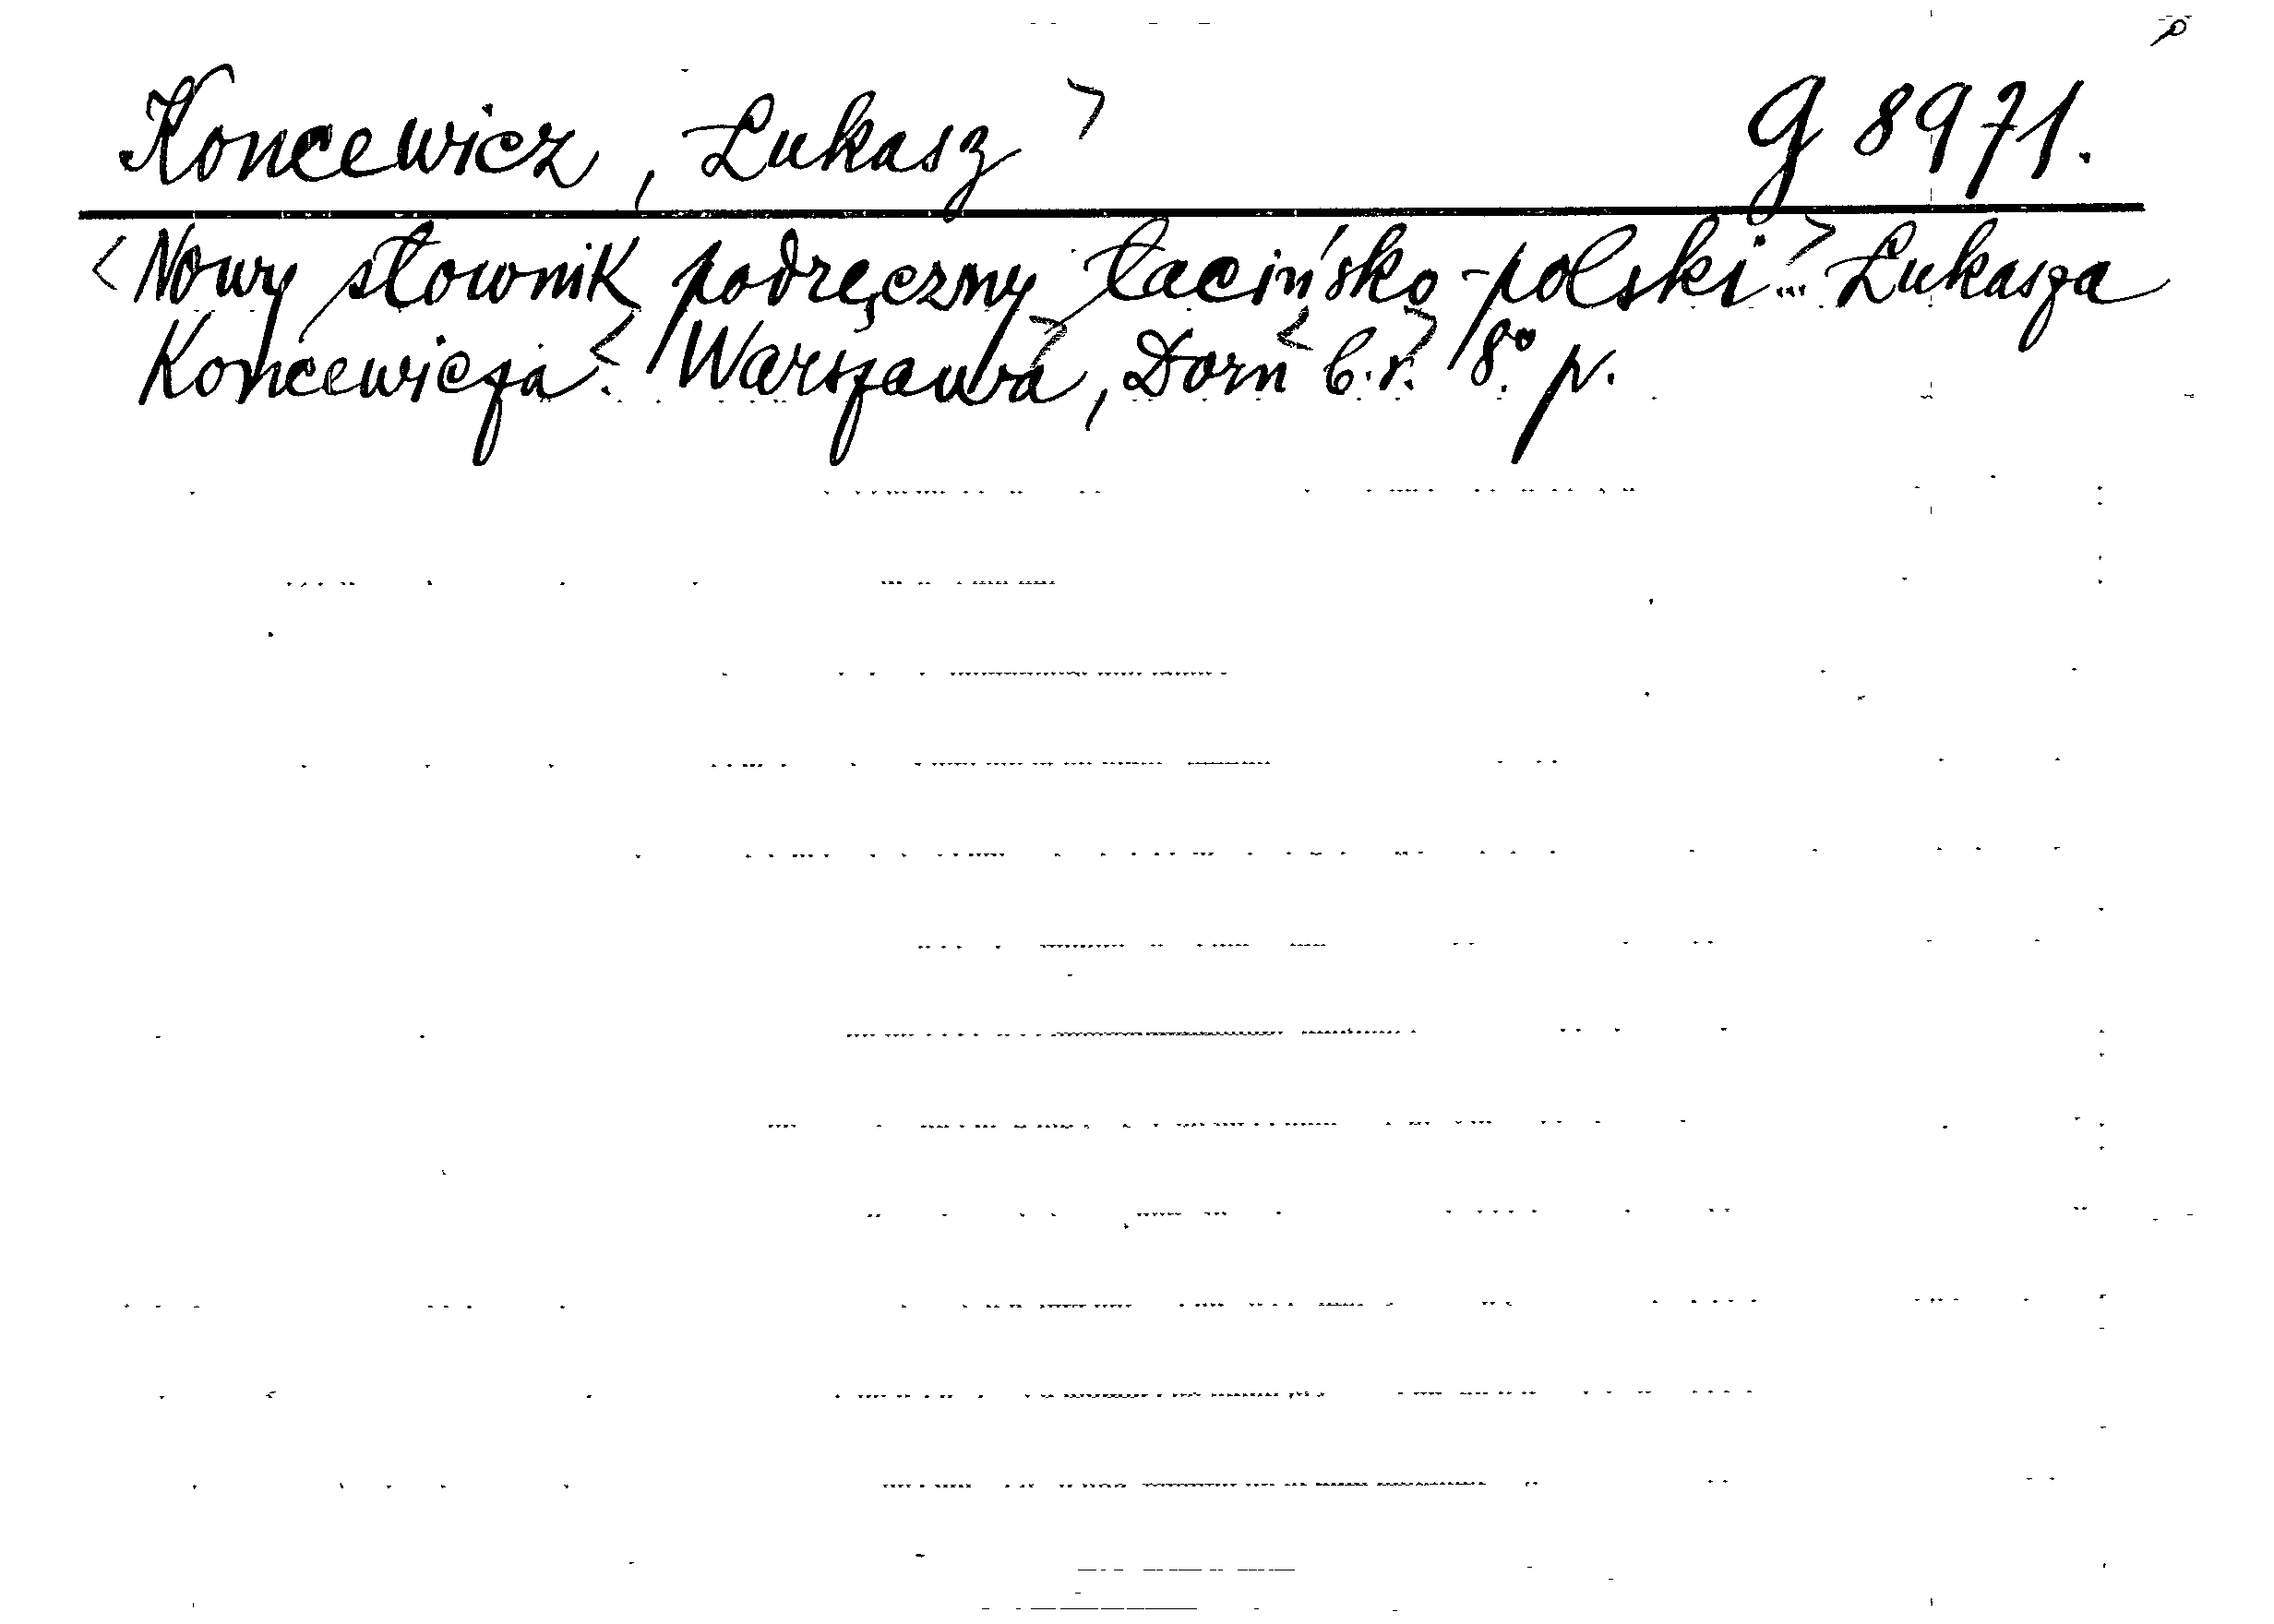 Koncewicz, Łukasz> g 8971.
<Nowy słownik podręczny łacińsko-polski...> Łukasza
Koncewicza. <Warszawa>, Dorn <b.r.> 8.° p.